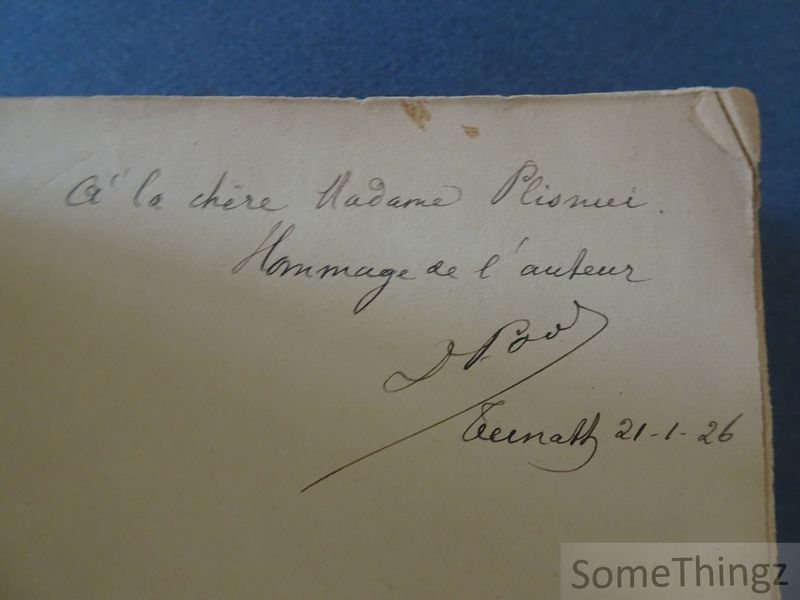 A' la chère Madame Plisnier.
Hommage de l'auteur
Ternath 21-1-26
SomeThingz